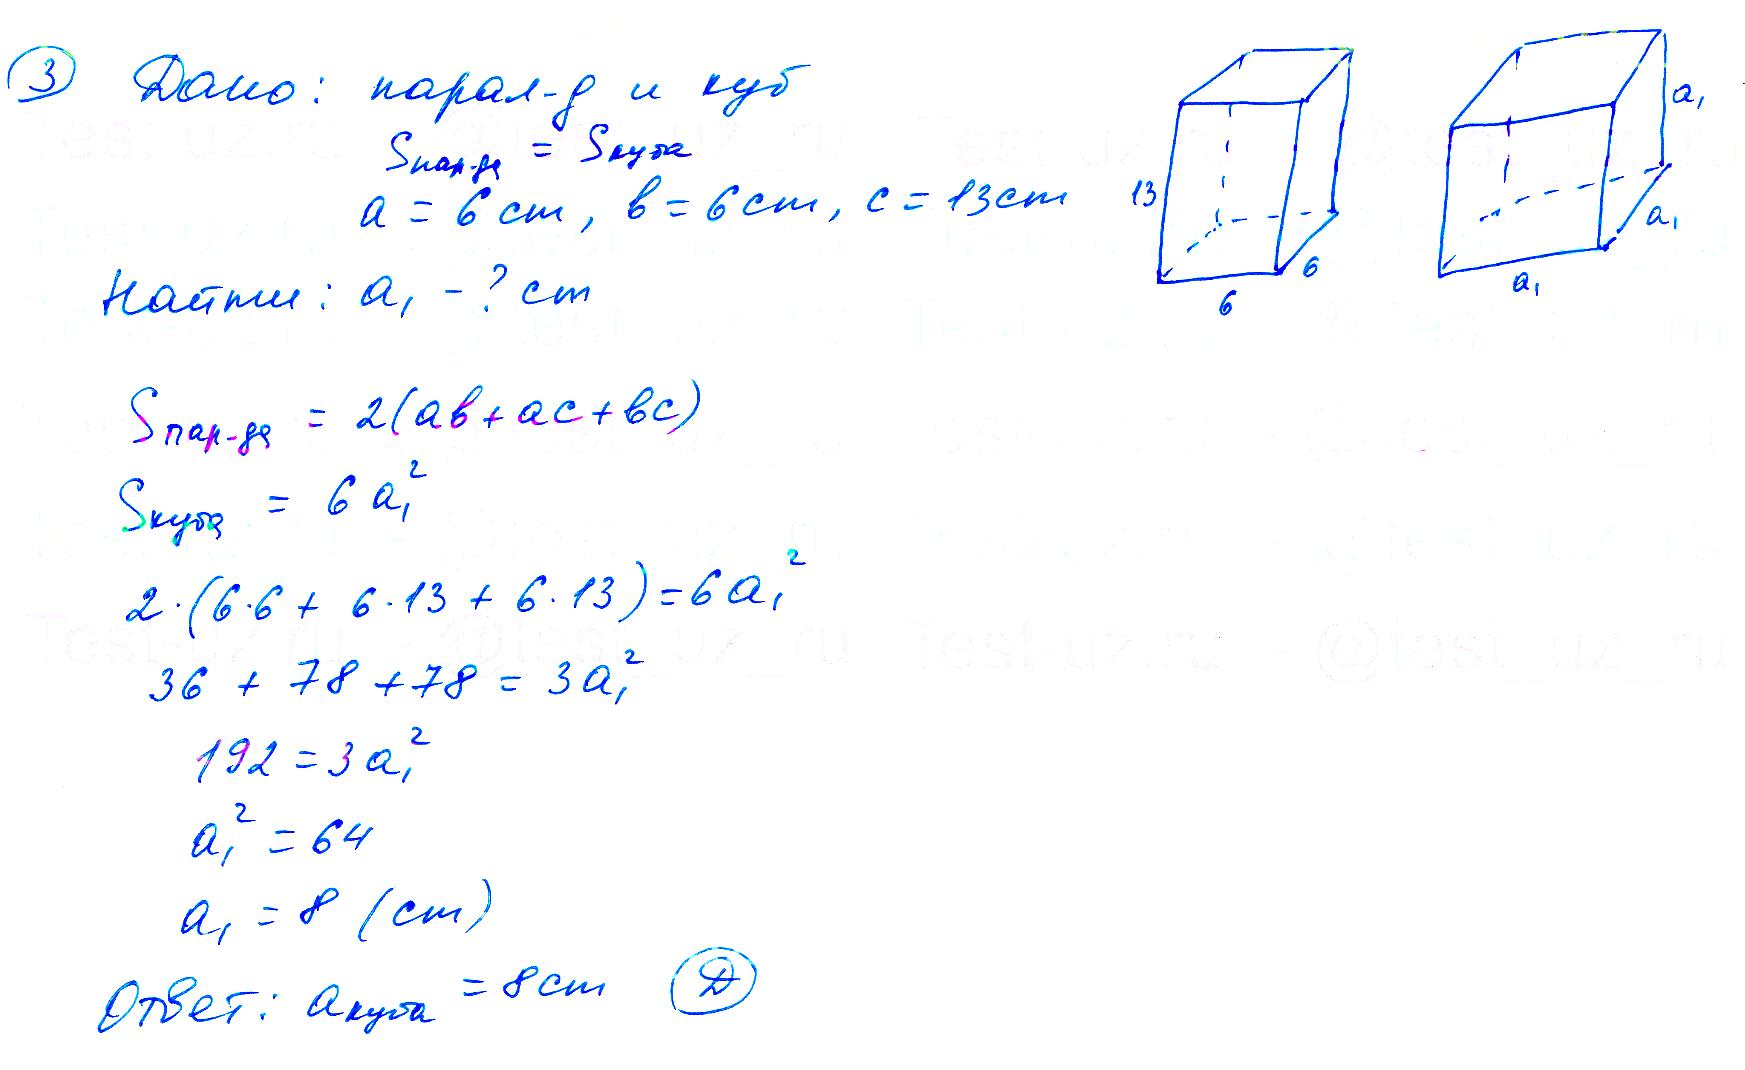 3 Дано: парал-д и куб
Sпар-да = Sкуба
a = 6 cm, b = 6 cm, c = 13 cm
Найти: a₁ - ? cm
13
6
6
a₁
a₁
a₁
Sпар-да = 2(ab+ac+bc)
Sкуба = 6a₁²
2·(6·6 + 6·13 + 6·13) = 6a₁²
36 + 78 + 78 = 3a₁²
192 = 3a₁²
a₁² = 64
a₁ = 8 (cm)
Ответ: aкуба = 8cm Д
Test-uz.ru - @test_uz_ru Test-uz.ru - @test_uz_ru